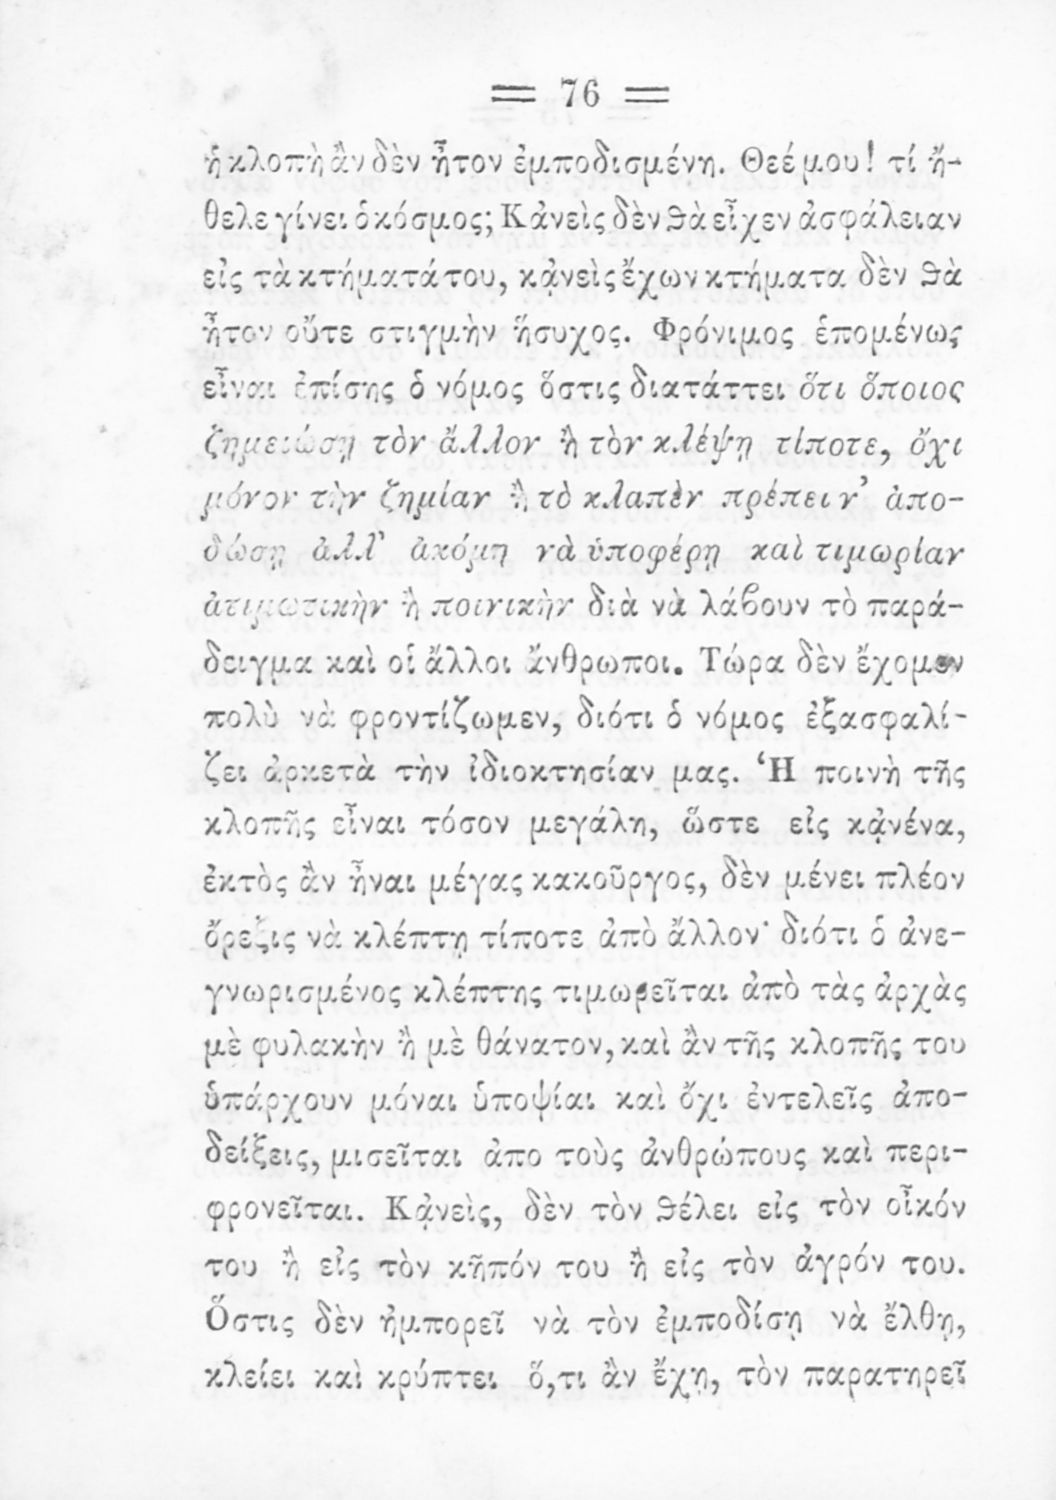 = 76 =
ἡ κλοπὴ ἂν δὲν ἦτον ἐμποδισμένη. Θεέ μου! τί ἤ-
θελε γίνει ὁ κόσμος; Κᾀνεὶς δὲν ϑὰ εἶχεν ἀσφάλειαν
εἰς τὰ κτήματά του, κᾀνεὶς ἔχων κτήματα δὲν ϑὰ
ἦτον οὔτε στιγμὴν ἥσυχος. Φρόνιμος ἑπομένως
εἶναι ἐπίσης ὁ νόμος ὅστις διατάττει ὅτι ὅποιος
ζημειώσῃ τὸν ἄλλον ἢ τὸν κλέψῃ τίποτε, ὄχι
μόνον τὴν ζημίαν ἢ τὸ κλαπὲν πρέπει ν’ ἀπο-
δώσῃ ἀλλ’ ἀκόμη νὰ ὑποφέρῃ καὶ τιμωρίαν
ἀτιμωτικὴν ἢ ποινικὴν διὰ νὰ λάβουν τὸ παρά-
δειγμα καὶ οἱ ἄλλοι ἄνθρωποι. Τώρα δὲν ἔχομεν
πολὺ νὰ φροντίζωμεν, διότι ὁ νόμος ἐξασφαλί-
ζει ἀρκετὰ τὴν ἰδιοκτησίαν μας. Ἡ ποινὴ τῆς
κλοπῆς εἶναι τόσον μεγάλη, ὥστε εἰς κᾀνένα,
ἐκτὸς ἂν ἦναι μέγας κακοῦργος, δὲν μένει πλέον
ὄρεξις νὰ κλέπτῃ τίποτε ἀπὸ ἄλλον· διότι ὁ ἀνε-
γνωρισμένος κλέπτης τιμωρεῖται ἀπὸ τὰς ἀρχὰς
μὲ φυλακὴν ἢ μὲ θάνατον, καὶ ἂν τῆς κλοπῆς του
ὑπάρχουν μόναι ὑποψίαι καὶ ὄχι ἐντελεῖς ἀπο-
δείξεις, μισεῖται ἀπο τοὺς ἀνθρώπους καὶ περι-
φρονεῖται. Κᾀνεὶς, δὲν τὸν ϑέλει εἰς τὸν οἶκόν
του ἢ εἰς τὸν κῆπόν του ἢ εἰς τὸν ἀγρόν του.
Ὅστις δὲν ἠμπορεῖ νὰ τὸν ἐμποδίσῃ νὰ ἔλθῃ,
κλείει καὶ κρύπτει ὅ,τι ἂν ἔχῃ, τὸν παρατηρεῖ